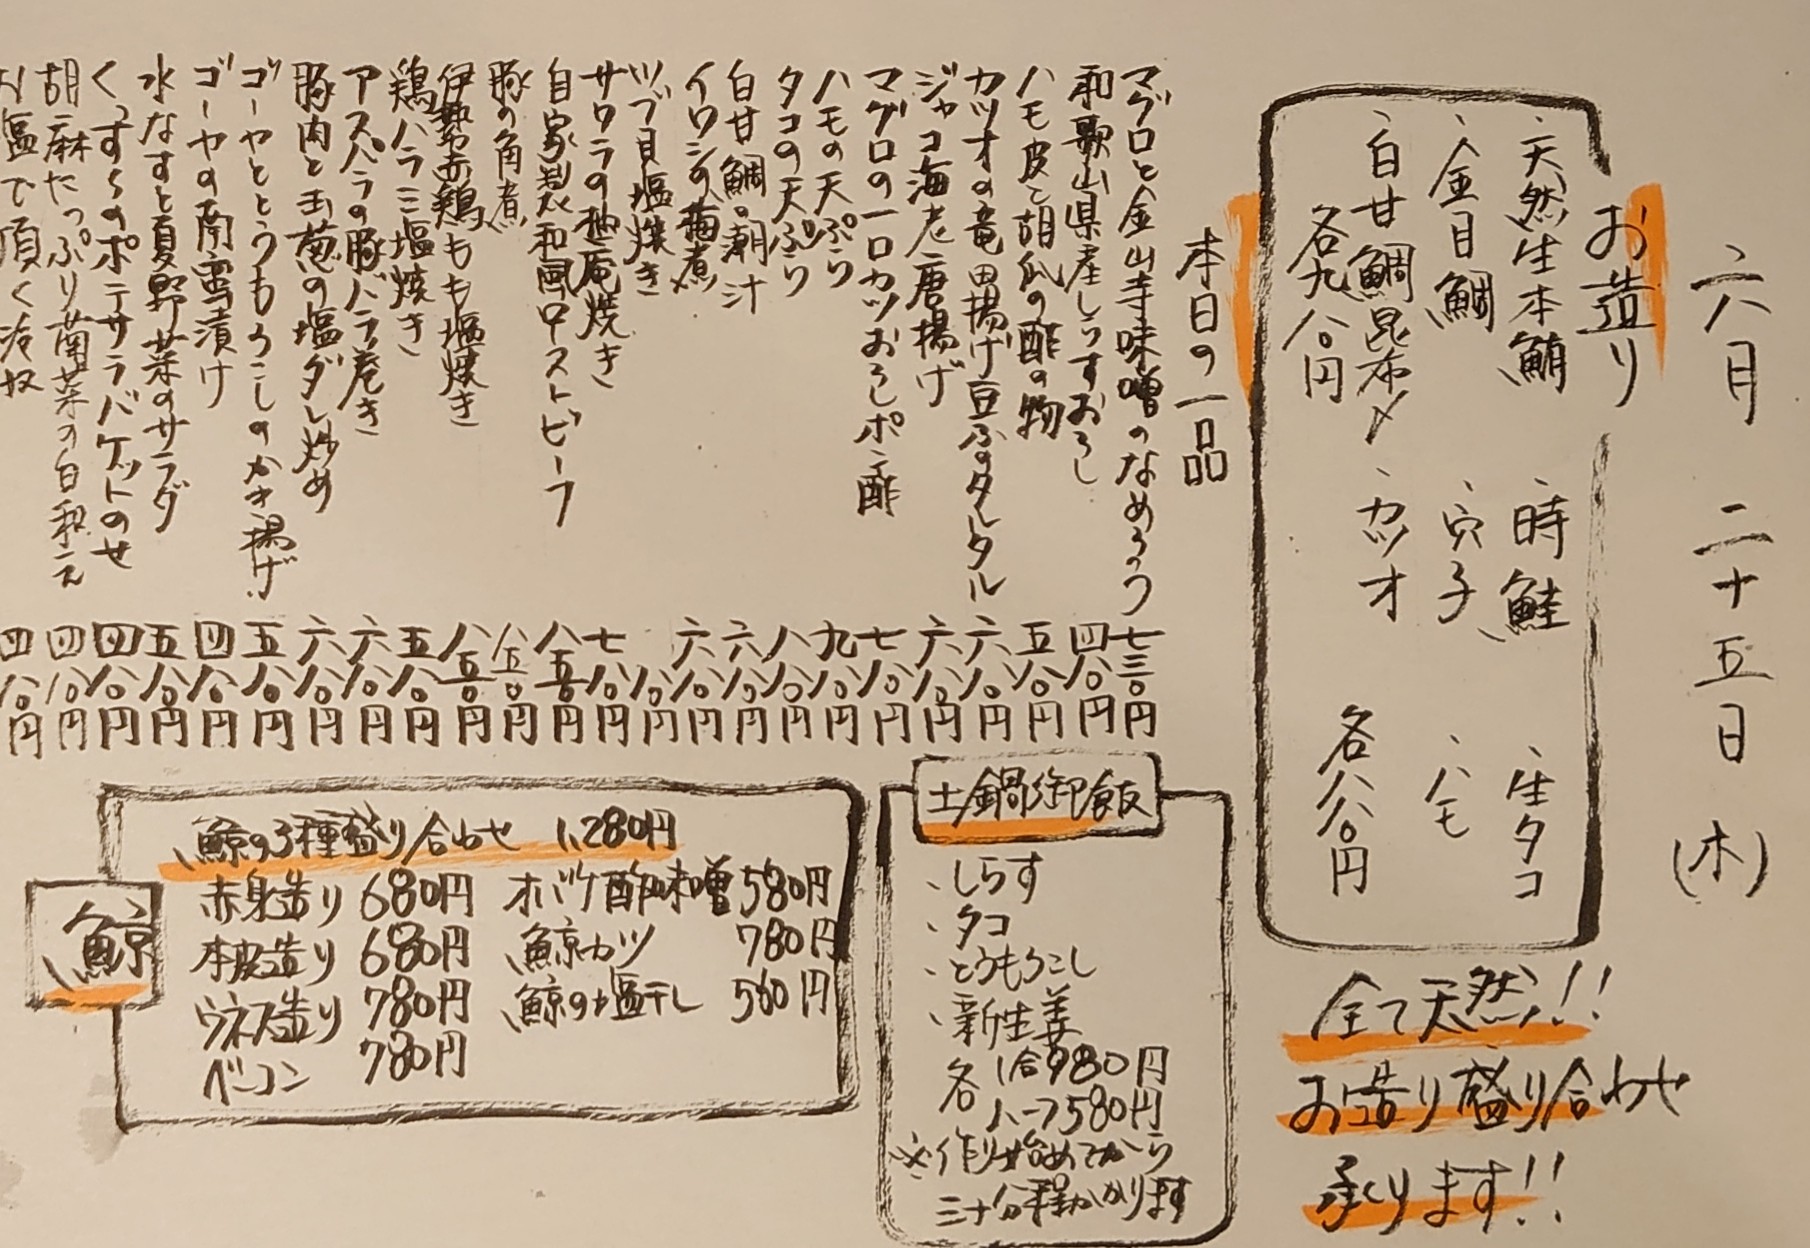 六月 二十五日 (木)
お造り
、天然生本鮪 、時鮭 、生タコ
、金目鯛 、穴子 、ハモ
、白甘鯛昆布〆 、カツオ
各九八〇円 各八八〇円
全て天然!!
お造り盛り合わせ
承ります!!
本日の一品
マグロと金山寺味噌のなめろう 七三〇円
和歌山県産しらすおろし 四八〇円
ハモ皮と胡瓜の酢の物 五八〇円
カツオの竜田揚げ豆ふのタルタル 六八〇円
ジャコ海老唐揚げ 六八〇円
マグロの一口カツおろしポン酢 七八〇円
ハモの天ぷら 九八〇円
タコの天ぷら 八八〇円
白甘鯛の潮汁 六八〇円
イワシの梅煮 六八〇円
ツブ貝塩焼き 八〇円
サワラの柚庵焼き 七八〇円
自家製和風ローストビーフ 八五〇円
豚の角煮 八五〇円
伊勢赤鶏もも塩焼き 八五〇円
鶏ハラミ塩焼き 五八〇円
アスパラの豚バラ巻き 六八〇円
豚肉と玉葱の塩ダレ炒め 六八〇円
ゴーヤととうもろこしのかき揚げ 五八〇円
ゴーヤの南蛮漬け 四八〇円
水なすと夏野菜のサラダ 五八〇円
ポテサラバケットのせ 四八〇円
胡麻たっぷり菊菜の白和え 四八〇円
お塩で頂く冷奴 四八〇円
土鍋御飯
、しらす
、タコ
、とうもろこし
、新生姜
各 1合980円
ハーフ580円
※作り始めてから
三十分程かかります
鯨
鯨の3種盛り合わせ 1,280円
赤身造り 680円 オバケ酢味噌 580円
本皮造り 680円 鯨カツ 780円
ウネス造り 780円 鯨の塩干し 560円
ベーコン 780円